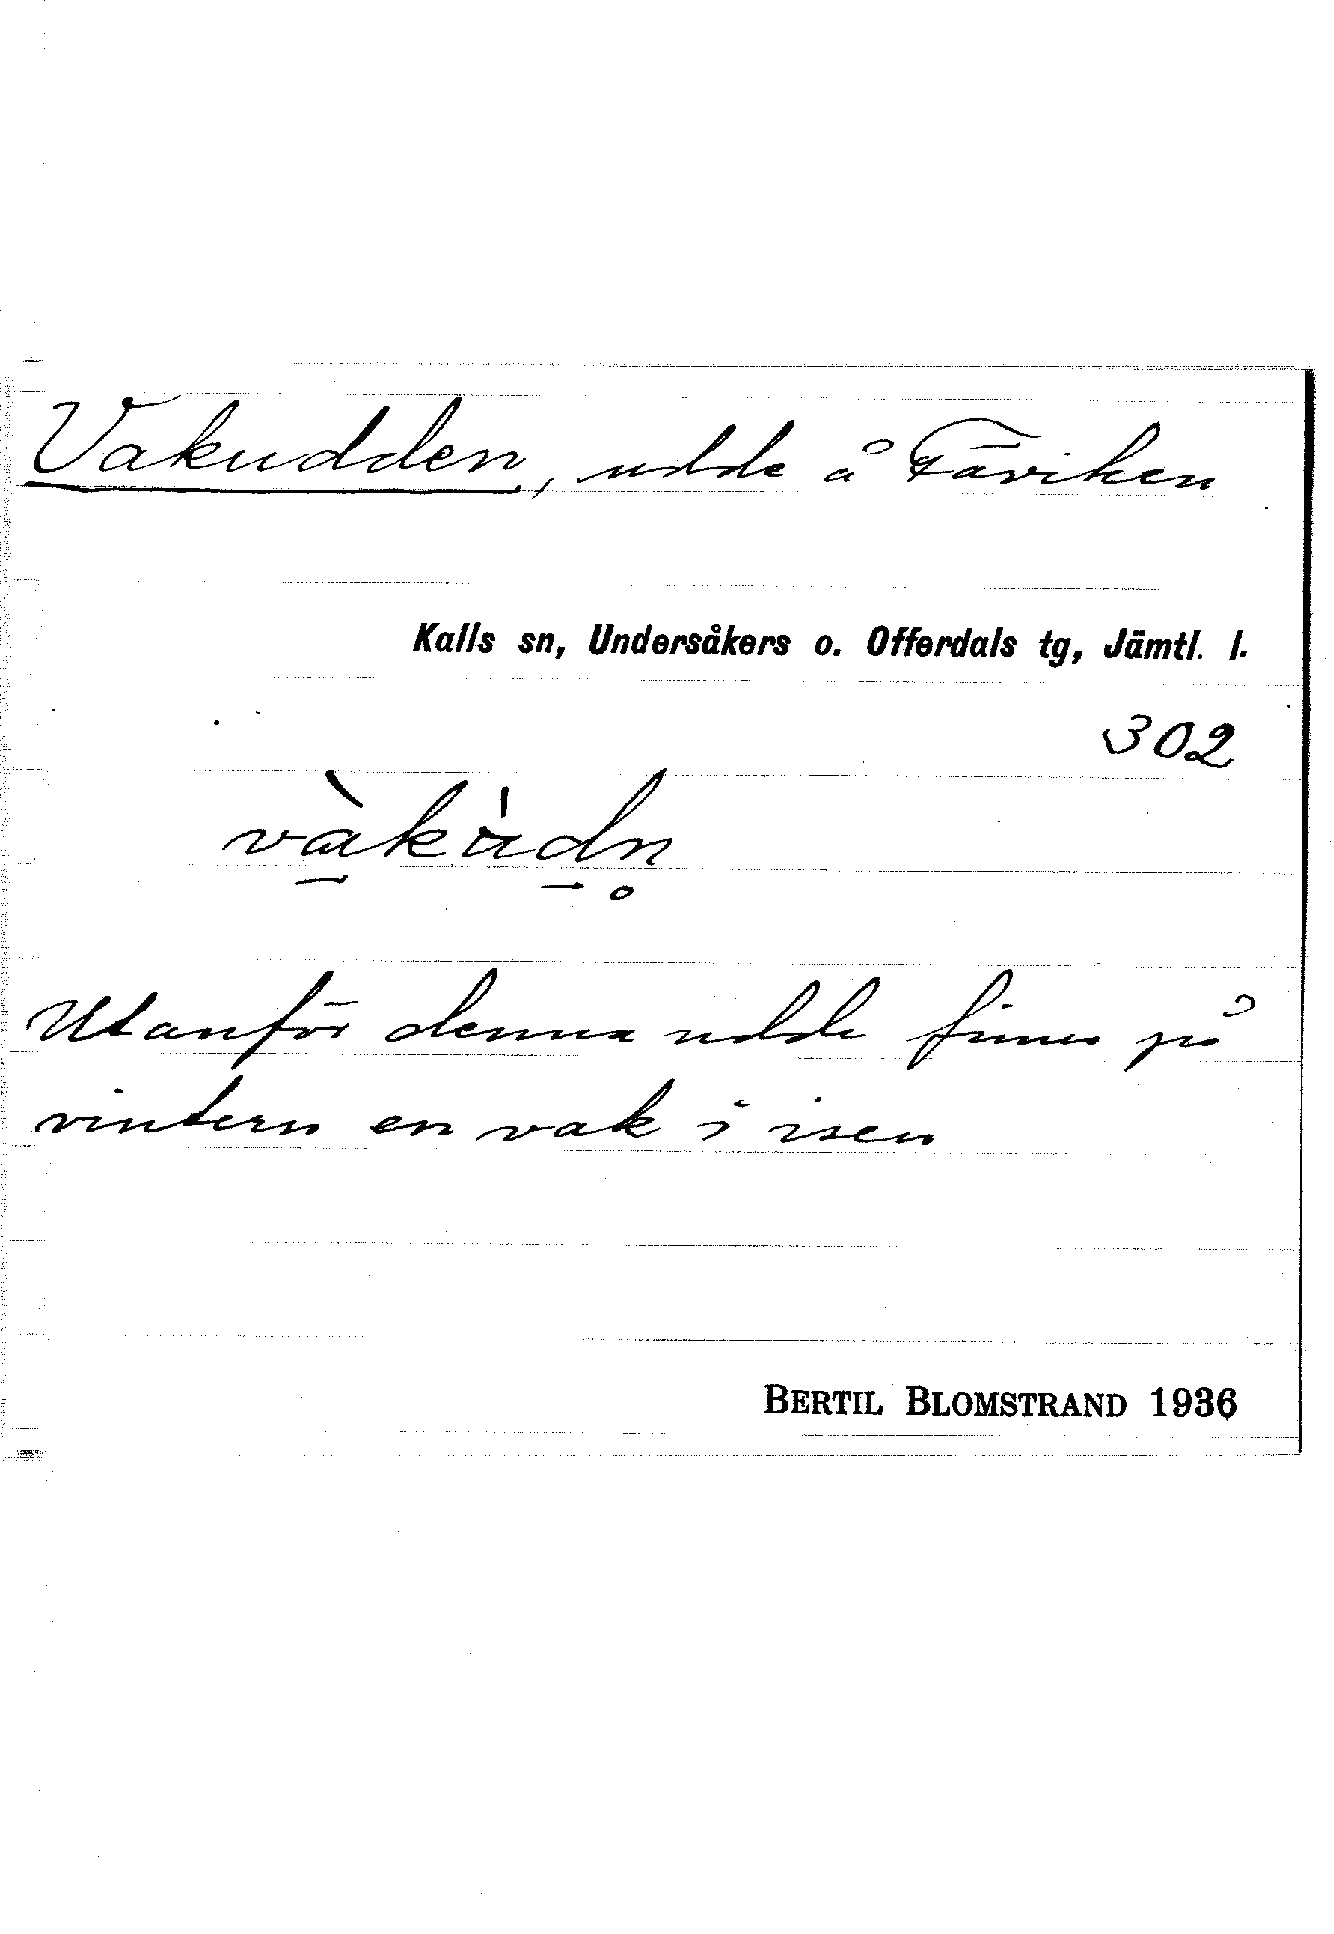 Vakudden, udde å Fäviken
Kalls sn, Undersåkers o. Offerdals tg, Jämtl. l.
302
vàkùdn̥
Utanför denna udde finnes på
vintern en vak i isen
BERTIL BLOMSTRAND 1936